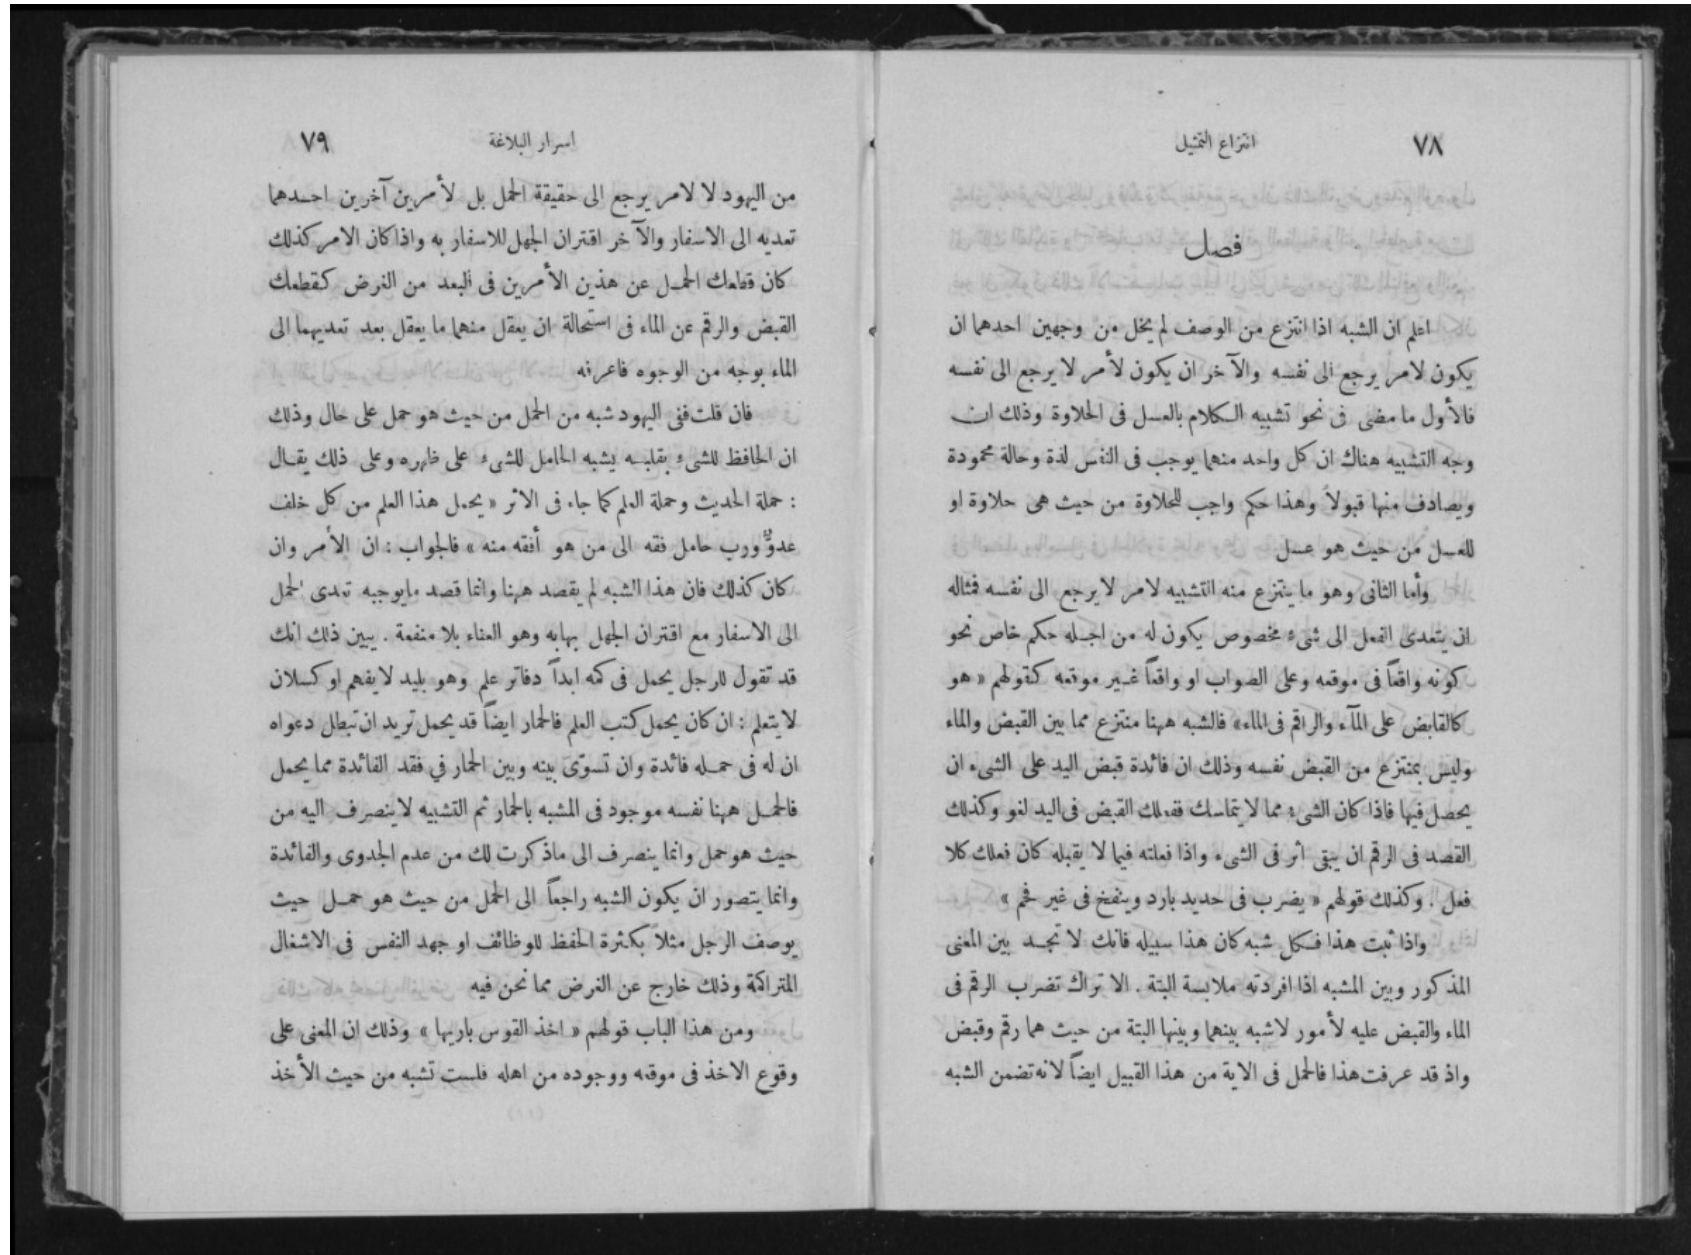 ٧٨
انتزاع التمثيل
فصل
اعلم ان الشبه اذا انتزع من الوصف لم يخل من وجهين احدهما ان
يكون لامر يرجع الى نفسه والآخر ان يكون لأمر لا يرجع الى نفسه
فالأول ما مضى فى نحو تشبيه الكلام بالعسل فى الحلاوة وذلك ان
وجه التشبيه هناك ان كل واحد منهما يوجب فى النفس لذة وحالة محمودة
ويصادف منها قبولاً وهذا حكم واجب للحلاوة من حيث هى حلاوة او
للعسل من حيث هو عسل
وأما الثانى وهو ما ينتزع منه التشبيه لامر لا يرجع الى نفسه فمثاله
ان يتعدى الفعل الى شىء مخصوص يكون له من اجله حكم خاص نحو
كونه واقعاً فى موقعه وعلى الصواب او واقعاً غير موقعه كقولهم « هو
كالقابض على المآء والراقم فى الماء» فالشبه ههنا منتزع مما بين القبض والماء
وليس بمنتزع من القبض نفسه وذلك ان فائدة قبض اليد على الشىء ان
يحصل فيها فاذا كان الشىء مما لا يتماسك ففعلك القبض فى اليد لغو وكذلك
القصد فى الرقم ان يبقى اثر فى الشىء واذا فعلته فيما لا يقبله كان فعلك كلا
فعل . وكذلك قولهم « يضرب فى حديد بارد وينفخ فى غير فحم »
واذا ثبت هذا فكل شبه كان هذا سبيله فانك لا تجد بين المعنى
المذكور وبين المشبه اذا افردته ملابسة البتة . الا تراك تضرب الرقم فى
الماء والقبض عليه لأمور لاشبه بينهما وبينها البتة من حيث هما رقم وقبض
واذ قد عرفت هذا فالحمل فى الاية من هذا القبيل ايضاً لانه تضمن الشبه
اسرار البلاغة
٧٩
من اليهود لا لامر يرجع الى حقيقة الحمل بل لأمرين آخرين احدهما
تعديه الى الاسفار والآخر اقتران الجهل للاسفار به واذا كان الامر كذلك
كان قطعك الحمل عن هذين الأمرين فى البعد من الغرض كقطعك
القبض والرقم عن الماء فى استحالة ان يعقل منهما ما يعقل بعد تعديهما الى
الماء بوجه من الوجوه فاعرفه
فان قلت ففى اليهود شبه من الحمل من حيث هو حمل على حال وذلك
ان الحافظ للشىء بقلبه يشبه الحامل للشىء على ظهره وعلى ذلك يقال
: حملة الحديث وحملة العلم كما جاء فى الاثر « يحمل هذا العلم من كل خلف
عدوُّ ورب حامل فقه الى من هو أفقه منه » فالجواب : ان الأمر وان
كان كذلك فان هذا الشبه لم يقصد ههنا وانما قصد مايوجبه تعدى الحمل
الى الاسفار مع اقتران الجهل بهابه وهو العناء بلا منفعة . يبين ذلك انك
قد تقول للرجل يحمل فى كمه ابداً دفاتر علم وهو بليد لا يفهم او كسلان
لا يتعلم : ان كان يحمل كتب العلم فالحمار ايضاً قد يحمل تريد ان تبطل دعواه
ان له فى حمله فائدة وان تسوّى بينه وبين الحمار في فقد الفائدة مما يحمل
فالحمل ههنا نفسه موجود فى المشبه بالحمار ثم التشبيه لا ينصرف اليه من
حيث هو حمل وانما ينصرف الى ماذكرت لك من عدم الجدوى والفائدة
وانما يتصور ان يكون الشبه راجعاً الى الحمل من حيث هو حمل حيث
يوصف الرجل مثلاً بكثرة الحفظ للوظائف او جهد النفس فى الاشغال
المتراكمة وذلك خارج عن الغرض مما نحن فيه
ومن هذا الباب قولهم « اخذ القوس باريها » وذلك ان المعنى على
وقوع الاخذ فى موقعه ووجوده من اهله فلست تشبه من حيث الأخذ